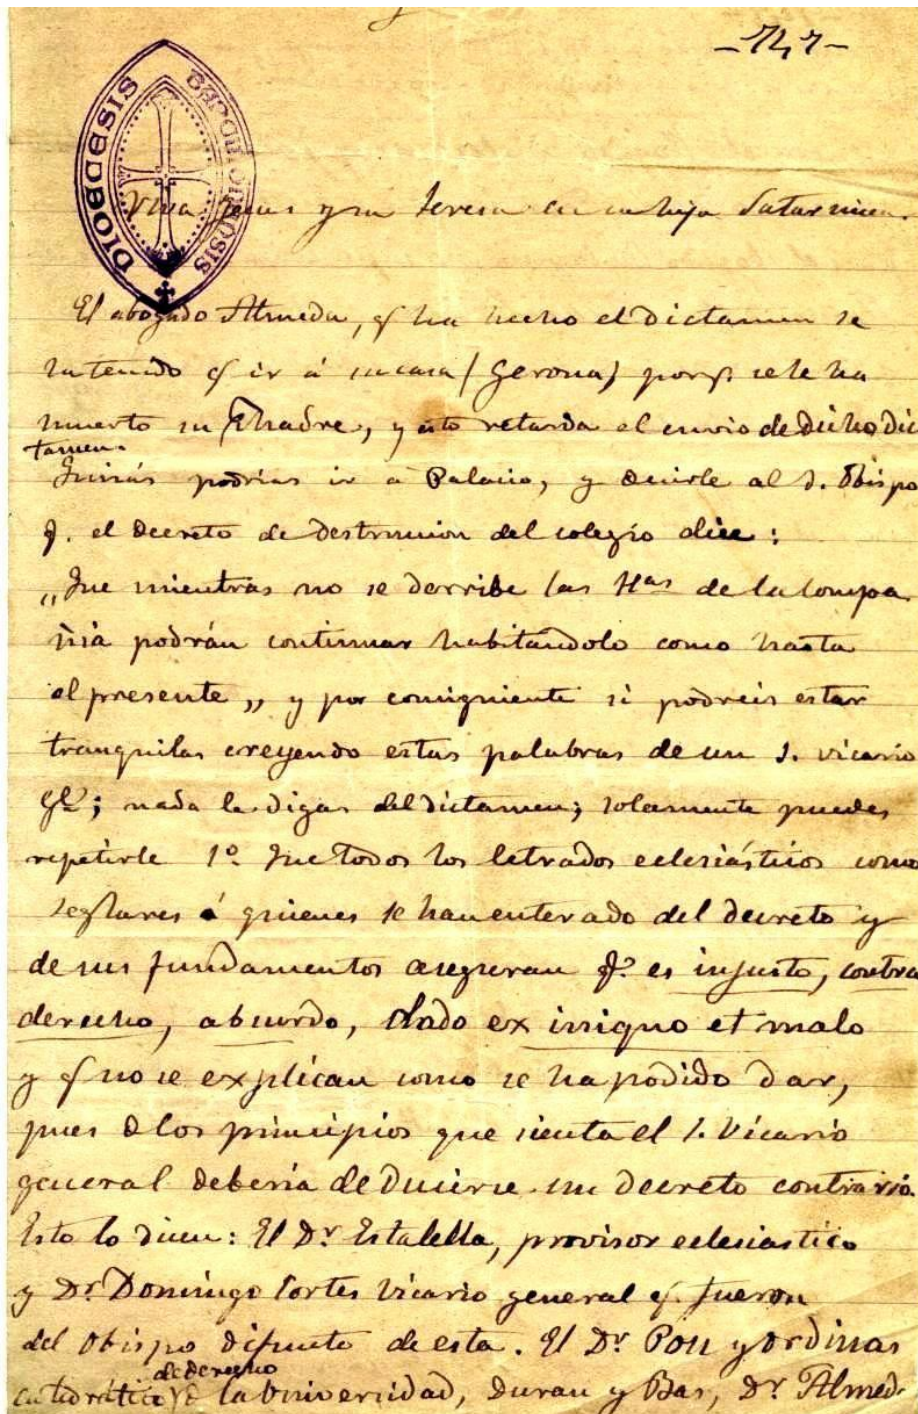 - 747 -
DIOECESIS
Viva Jesus y su Teresa en su hija Saturnina.
El abogado Almeda, q ha hecho el dictamen se
ha tenido q ir á su casa (Gerona) porq. se le ha
muerto su Madre, y esto retarda el envio de dicho dic
tamen.
podrias ir a Palacio, y decirle al S. Obispo
q. el decreto de destruccion del colegio dice:
„Que mientras no se derribe las Has de la Compa
ñia podrán continuar habitándolo como hasta
el presente„ y por consiguiente si podreis estar
tranquilas creyendo estas palabras de un S. vicario
Gl; nada le digas del dictamen; solamente puedes
repetirle 1º. Que todos los letrados eclesiásticos como
seglares á quienes se han enterado del decreto y
de sus fundamentos aseguran q.e es injusto, contra
derecho, absurdo, dado ex iniquo et malo
y q no se explican como se ha podido dar,
pues d los principios que sienta el S. Vicario
general deberia deducirse un decreto contrario.
Esto lo dicen: El Dr Estalella, provisor eclesiastico
y Dr. Domingo Cortes Vicario general q. fueron
del Obispo difunto de esta. El Dr Pou y Ordinas
catedratico de derecho d la Universidad, Duran y Bas, Dr Almed